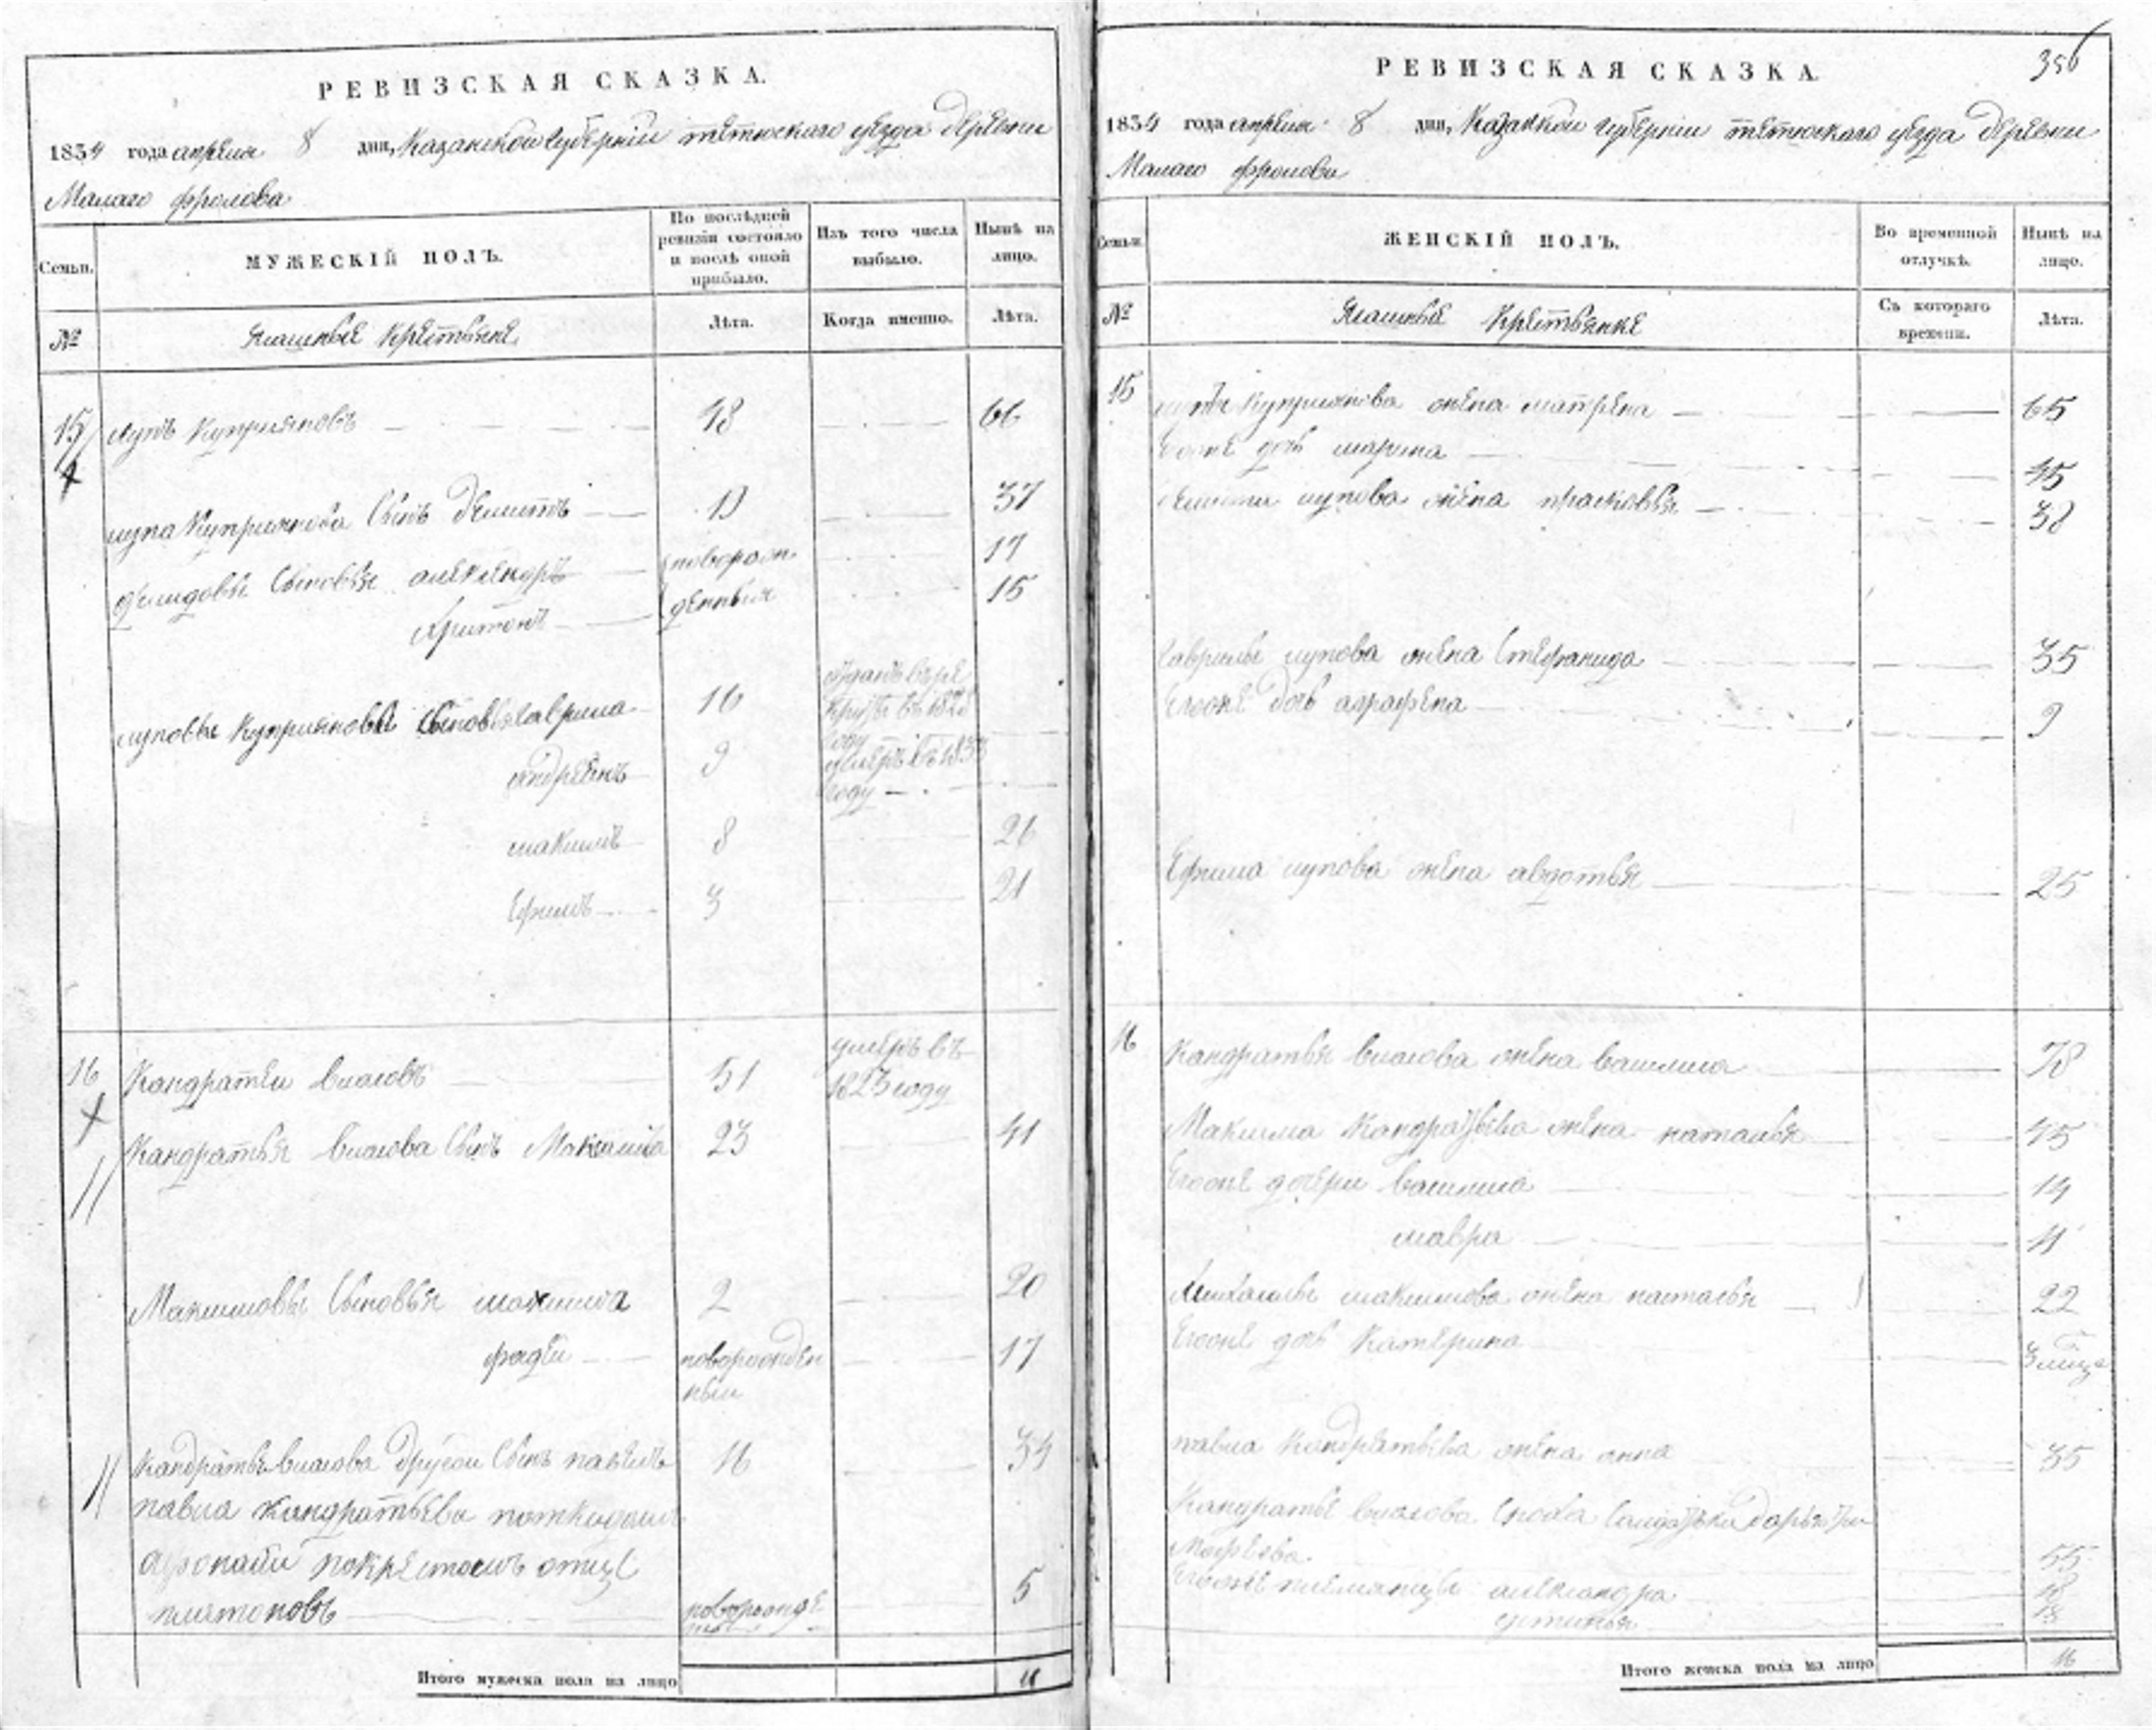 РЕВИЗСКАЯ СКАЗКА.
1834 года апреля 8 дня, Казанской губернiи тетюскаго уезда деревни
Малаго фролова
Семьи.
МУЖЕСКIЙ ПОЛЪ.
По послѣдней ревизiи состояло и послѣ оной прибыло.
Изъ того числа выбыло.
Нынѣ на лицо.
№
Ясашные крестьяне
Лѣта.
Когда именно.
Лѣта.
15 лупъ Куприяновъ 48 66
лупа Куприянова сынъ демитъ 19 37
сыновья александръ новорож 17
Харитонъ денныя 15
луповы Куприяновы сыновья гаврила 16 отданъ въ ре круты въ 1828 году
андреянъ 9 умеръ въ 1833 году
макимъ 8 26
Ефимъ 3 21
16 Кандратеи власовъ 51 умеръ въ 1823 году
Кандратья власова сынъ Максима 23 41
Макимовы сыновья 2 20
фадеи новорожден ныи 17
Кандратья власова другои сынъ павелъ 16 34
павла кандратьева поткидош
афонасеи покрестномъ отце
платоновъ новорожде 5
Итого мужеска пола на лицо 11
356
РЕВИЗСКАЯ СКАЗКА.
1834 года апреля 8 дня, Казанской губернiи тетюскаго уезда деревни
Малаго фролова
Семьи.
ЖЕНСКIЙ ПОЛЪ.
Во временной отлучкѣ.
Нынѣ на лицо.
№
Ясашные крестьянке
Съ котораго времени.
Лѣта.
15 лупы Куприянова жена матрена 65
Егоже дочь марина 45
лупова жена прасковья 38
Гаврилы лупова жена Стефанида 35
Егоже дочь аграфена 9
Ефима лупова жена авдотья 25
16 Кандратья власова жена василиса 78
Макима Кандратьева жена наталья 45
Егоже дочери василиса 14
мавра 11
Михаилы макимова жена настасья 22
Егоже дочь Катерина 3
павла Кандратьева жена анна 35
Кандратья власова сноха салдатка дарья
55
Егоже племянницы александра 18
устинья 18
Итого женска пола на лицо 16